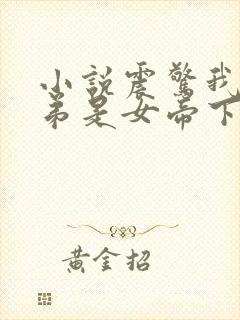 小説震驚我
弟是女帝下
黄金招